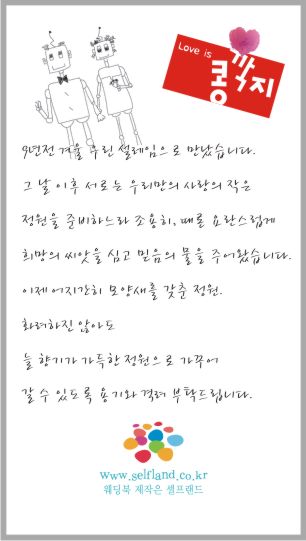 Love is
콩깍지
9년전 겨울 우린 설레임으로 만났습니다.
그 날 이후 서로는 우리만의 사랑의 작은
정원을 준비하느라 조용히, 때론 요란스럽게
희망의 씨앗을 심고 믿음의 물을 주어왔습니다.
이제 어지간히 모양새를 갖춘 정원.
화려하진 않아도
늘 향기가 가득한 정원으로 가꾸어
갈 수 있도록 용기와 격려 부탁드립니다.
www.selfland.co.kr
웨딩북 제작은 셀프랜드